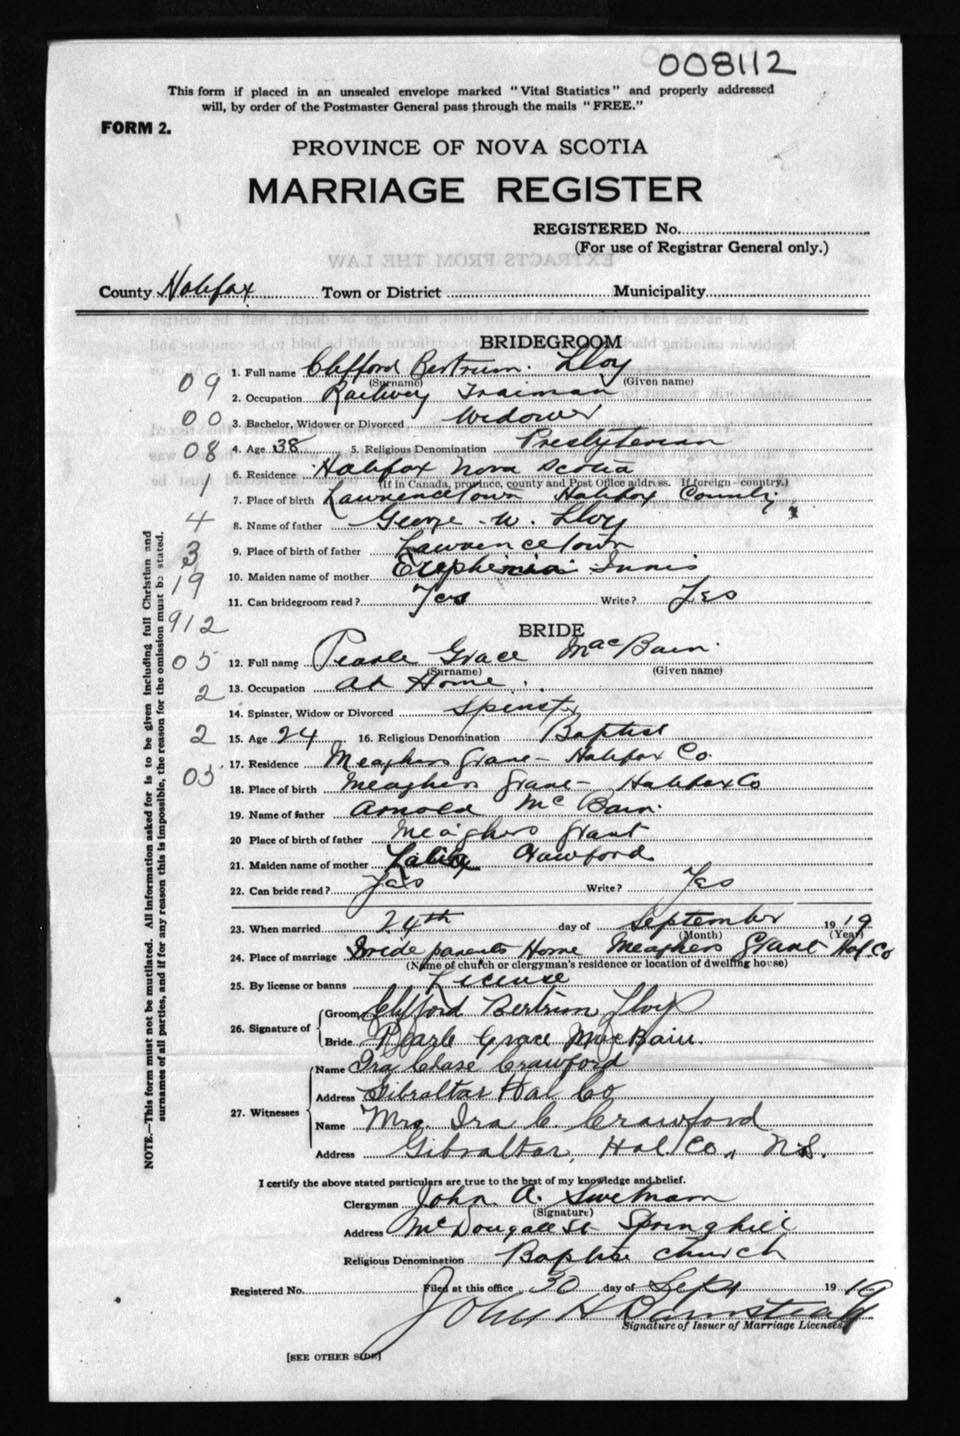 008112
This form if placed in an unsealed envelope marked "Vital Statistics" and properly addressed
will, by order of the Postmaster General pass through the mails "FREE."
FORM 2.
PROVINCE OF NOVA SCOTIA
MARRIAGE REGISTER
REGISTERED No.
(For use of Registrar General only.)
EXTRACTS FROM THE LAW
County Halifax Town or District Municipality
BRIDEGROOM
1. Full name Clifford Bertrum Lloy
(Surname) (Given name)
09
2. Occupation Railway Trainman
00
3. Bachelor, Widower or Divorced Widower
08
4. Age 38 5. Religious Denomination Presbyterian
6. Residence Halifax Nova Scotia
(If in Canada, province, county and Post Office address. If foreign - country.)
1
7. Place of birth Lawrencetown Halifax County
4
8. Name of father George W. Lloy
3
9. Place of birth of father Lawrencetown
19
10. Maiden name of mother Innis
11. Can bridegroom read? Yes Write? Yes
912
BRIDE
05
12. Full name Pearle Grace MacBain
(Surname) (Given name)
2
13. Occupation at Home
14. Spinster, Widow or Divorced Spinster
2
15. Age 24 16. Religious Denomination Baptist
17. Residence Meaghers Grant - Halifax Co
05
18. Place of birth Meaghers Grant - Halifax Co
19. Name of father Arnold McBain
20 Place of birth of father Meaghers Grant
21. Maiden name of mother Crawford
22. Can bride read? Yes Write? Yes
23. When married 24th day of September 1919
(Month) (Year)
24. Place of marriage Bride parents Home Meaghers Grant Hal. Co
(Name of church or clergyman's residence or location of dwelling house)
25. By license or banns License
26. Signature of
Groom Clifford Bertrim Lloy
Bride Pearle Grace MacBain.
27. Witnesses
Name Ira Chase Crawford
Address Gibraltar Hal Co
Name Mrs. Ira C. Crawford
Address Gibraltar, Hal. Co., N.S.
I certify the above stated particulars are true to the best of my knowledge and belief.
Clergyman John A. Swetnam
(Signature)
Address McDougall St Springhill
Religious Denomination Baptist Church
Registered No. Filed at this office 30 day of Sept 1919
John H Barnstead
Signature of Issuer of Marriage Licenses
[SEE OTHER SIDE]
NOTE.—This form must not be mutilated. All information asked for is to be given including full Christian and
surnames of all parties, and if for any reason this is impossible, the reason for the omission must be stated.